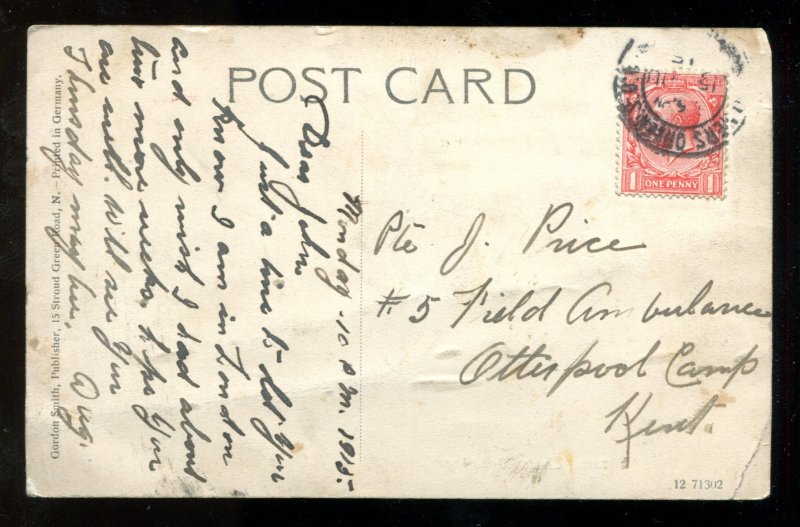 POST CARD
Monday - 10 P.M. 1915-
Dear John
Just a line to let you
know I am in London
and only wish I had about
two more weeks. Hope you
are well. Will see you
Thursday maybe.
Aug.
Gordon Smith, Publisher, 15 Stroud Green Road, N. — Printed in Germany.
Pte J. Price
#5 Field Ambulance
Otterpool Camp
Kent.
1 ONE PENNY 1
12 71302